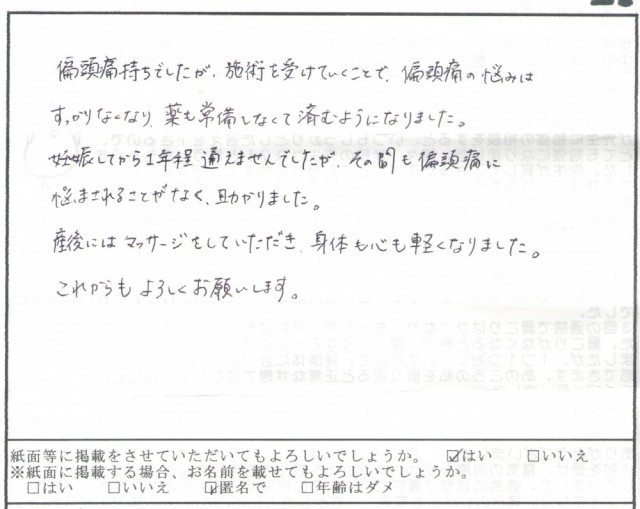 偏頭痛持ちでしたが、施術を受けていくことで、偏頭痛の悩みは
すっかりなくなり、薬も常備しなくて済むようになりました。
妊娠してから1年程通えませんでしたが、その間も偏頭痛に
悩まされることがなく、助かりました。
産後にはマッサージをしていただき、身体も心も軽くなりました。
これからもよろしくお願いします。
紙面等に掲載をさせていただいてもよろしいでしょうか。 ☑はい □いいえ
※紙面に掲載する場合、お名前を載せてもよろしいでしょうか。
□はい □いいえ ☑匿名で □年齢はダメ